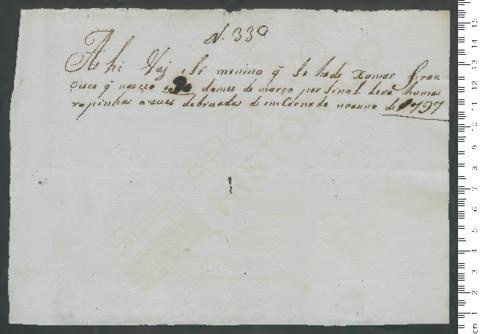 N. 330
Ahi Vaj este menino q̃ se hade xamar Fran
cisco q̃ naceo a do mes de março por sinal leva humas
ropinhas azues debruadas de emCarnado no anno de 1797